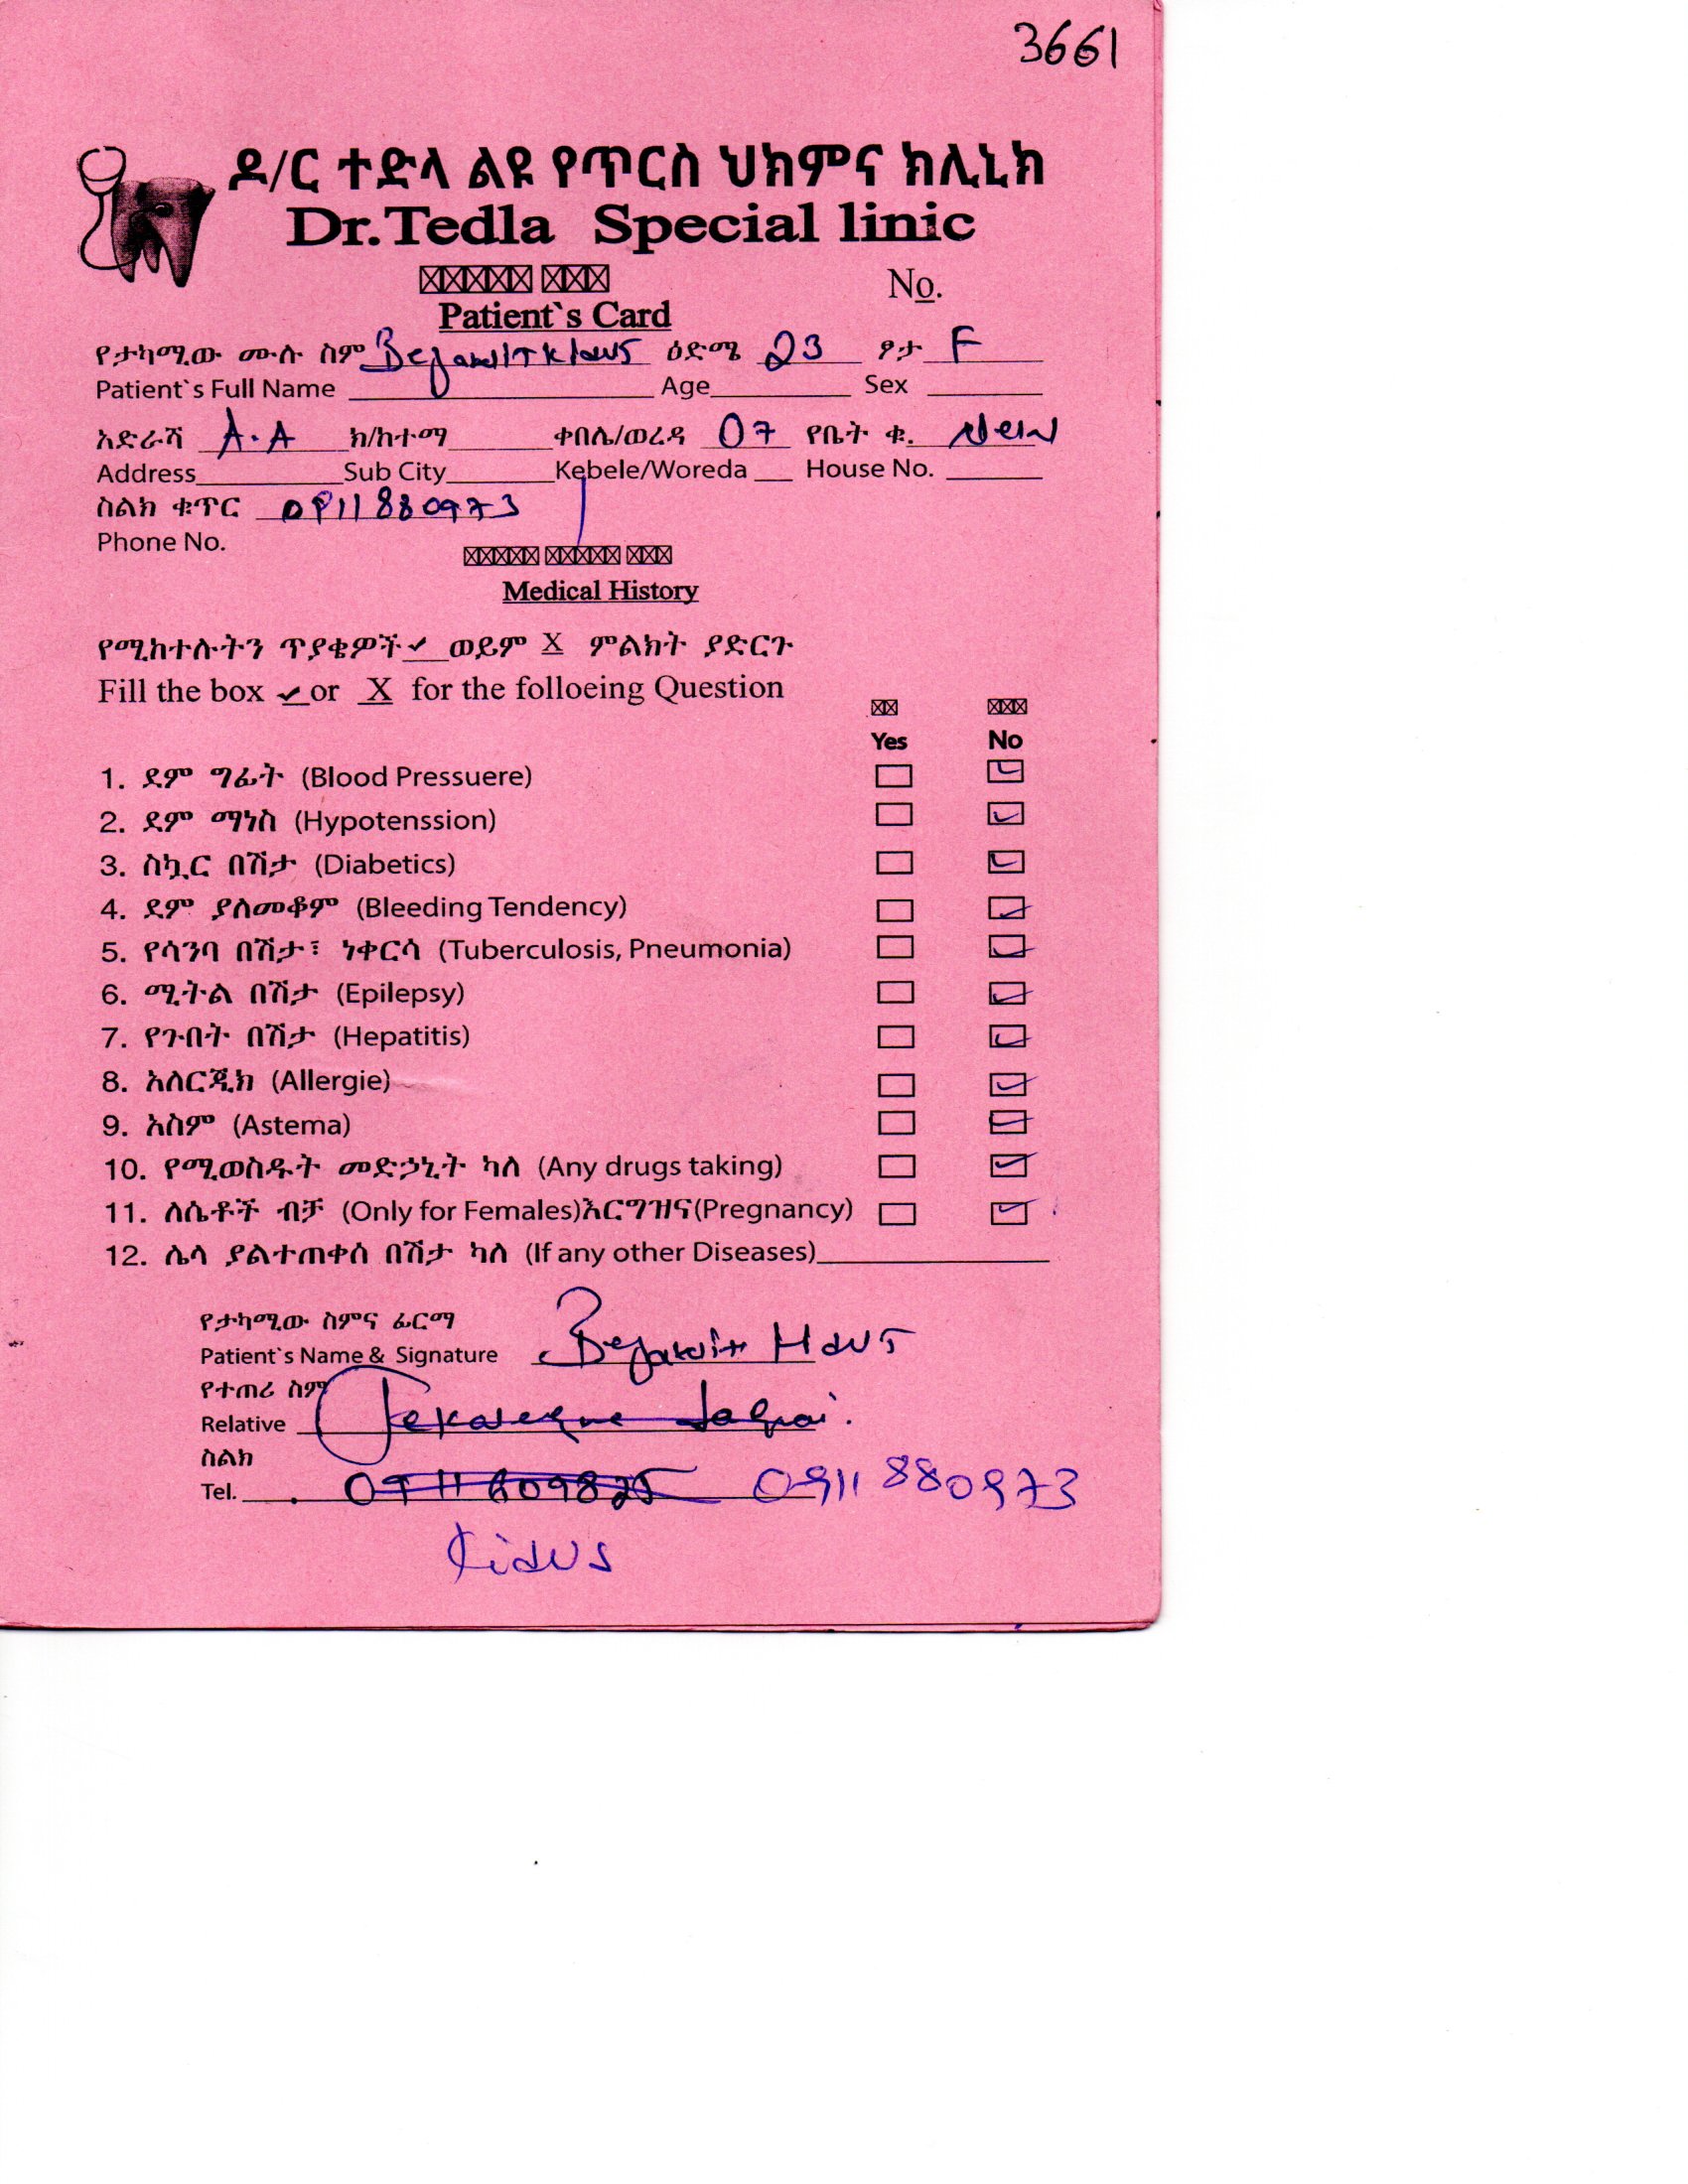 3661
ዶ/ር ተድላ ልዩ የጥርስ ህክምና ክሊኒክ
Dr.Tedla Special linic
No.
Patient`s Card
የታካሚው ሙሉ ስም ዕድሜ 23 ፆታ F
Patient`s Full Name Age Sex
አድራሻ A.A ክ/ከተማ ቀበሌ/ወረዳ 07 የቤት ቁ. New
Address Sub City Kebele/Woreda House No.
ስልክ ቁጥር 0911880973
Phone No.
Medical History
የሚከተሉትን ጥያቄዎች ✓ ወይም X ምልክት ያድርጉ
Fill the box ✓ or X for the folloeing Question
Yes No
1. ደም ግፊት (Blood Pressuere)
2. ደም ማነስ (Hypotenssion)
3. ስኳር በሽታ (Diabetics)
4. ደም ያለመቆም (Bleeding Tendency)
5. የሳንባ በሽታ፣ ነቀርሳ (Tuberculosis, Pneumonia)
6. ሚትል በሽታ (Epilepsy)
7. የጉበት በሽታ (Hepatitis)
8. አለርጂክ (Allergie)
9. አስም (Astema)
10. የሚወስዱት መድኃኒት ካለ (Any drugs taking)
11. ለሴቶች ብቻ (Only for Females)እርግዝና(Pregnancy)
12. ሌላ ያልተጠቀሰ በሽታ ካለ (If any other Diseases)
የታካሚው ስምና ፊርማ
Patient`s Name & Signature
የተጠሪ ስም
Relative
ስልክ
Tel. 0911609825 0911880973
kidus